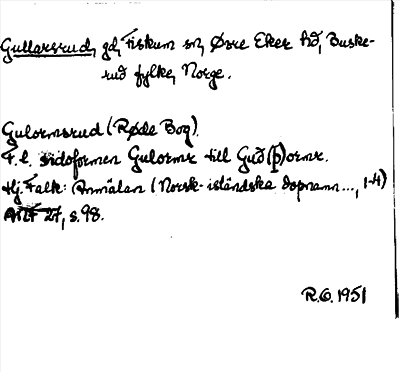 Gullarsrud, gd, Fiskum sn, Øvre Eker hd, Buske-
rud fylke, Norge.
Gulormsrud (Røde Bog).
F.l. sidoformen Gulormr till Guð(þ)ormr.
Hj. Falk: Anmälan (Norsk-isländska dopnamn..., 1-4)
ANF 27, s. 98.
R.O. 1951